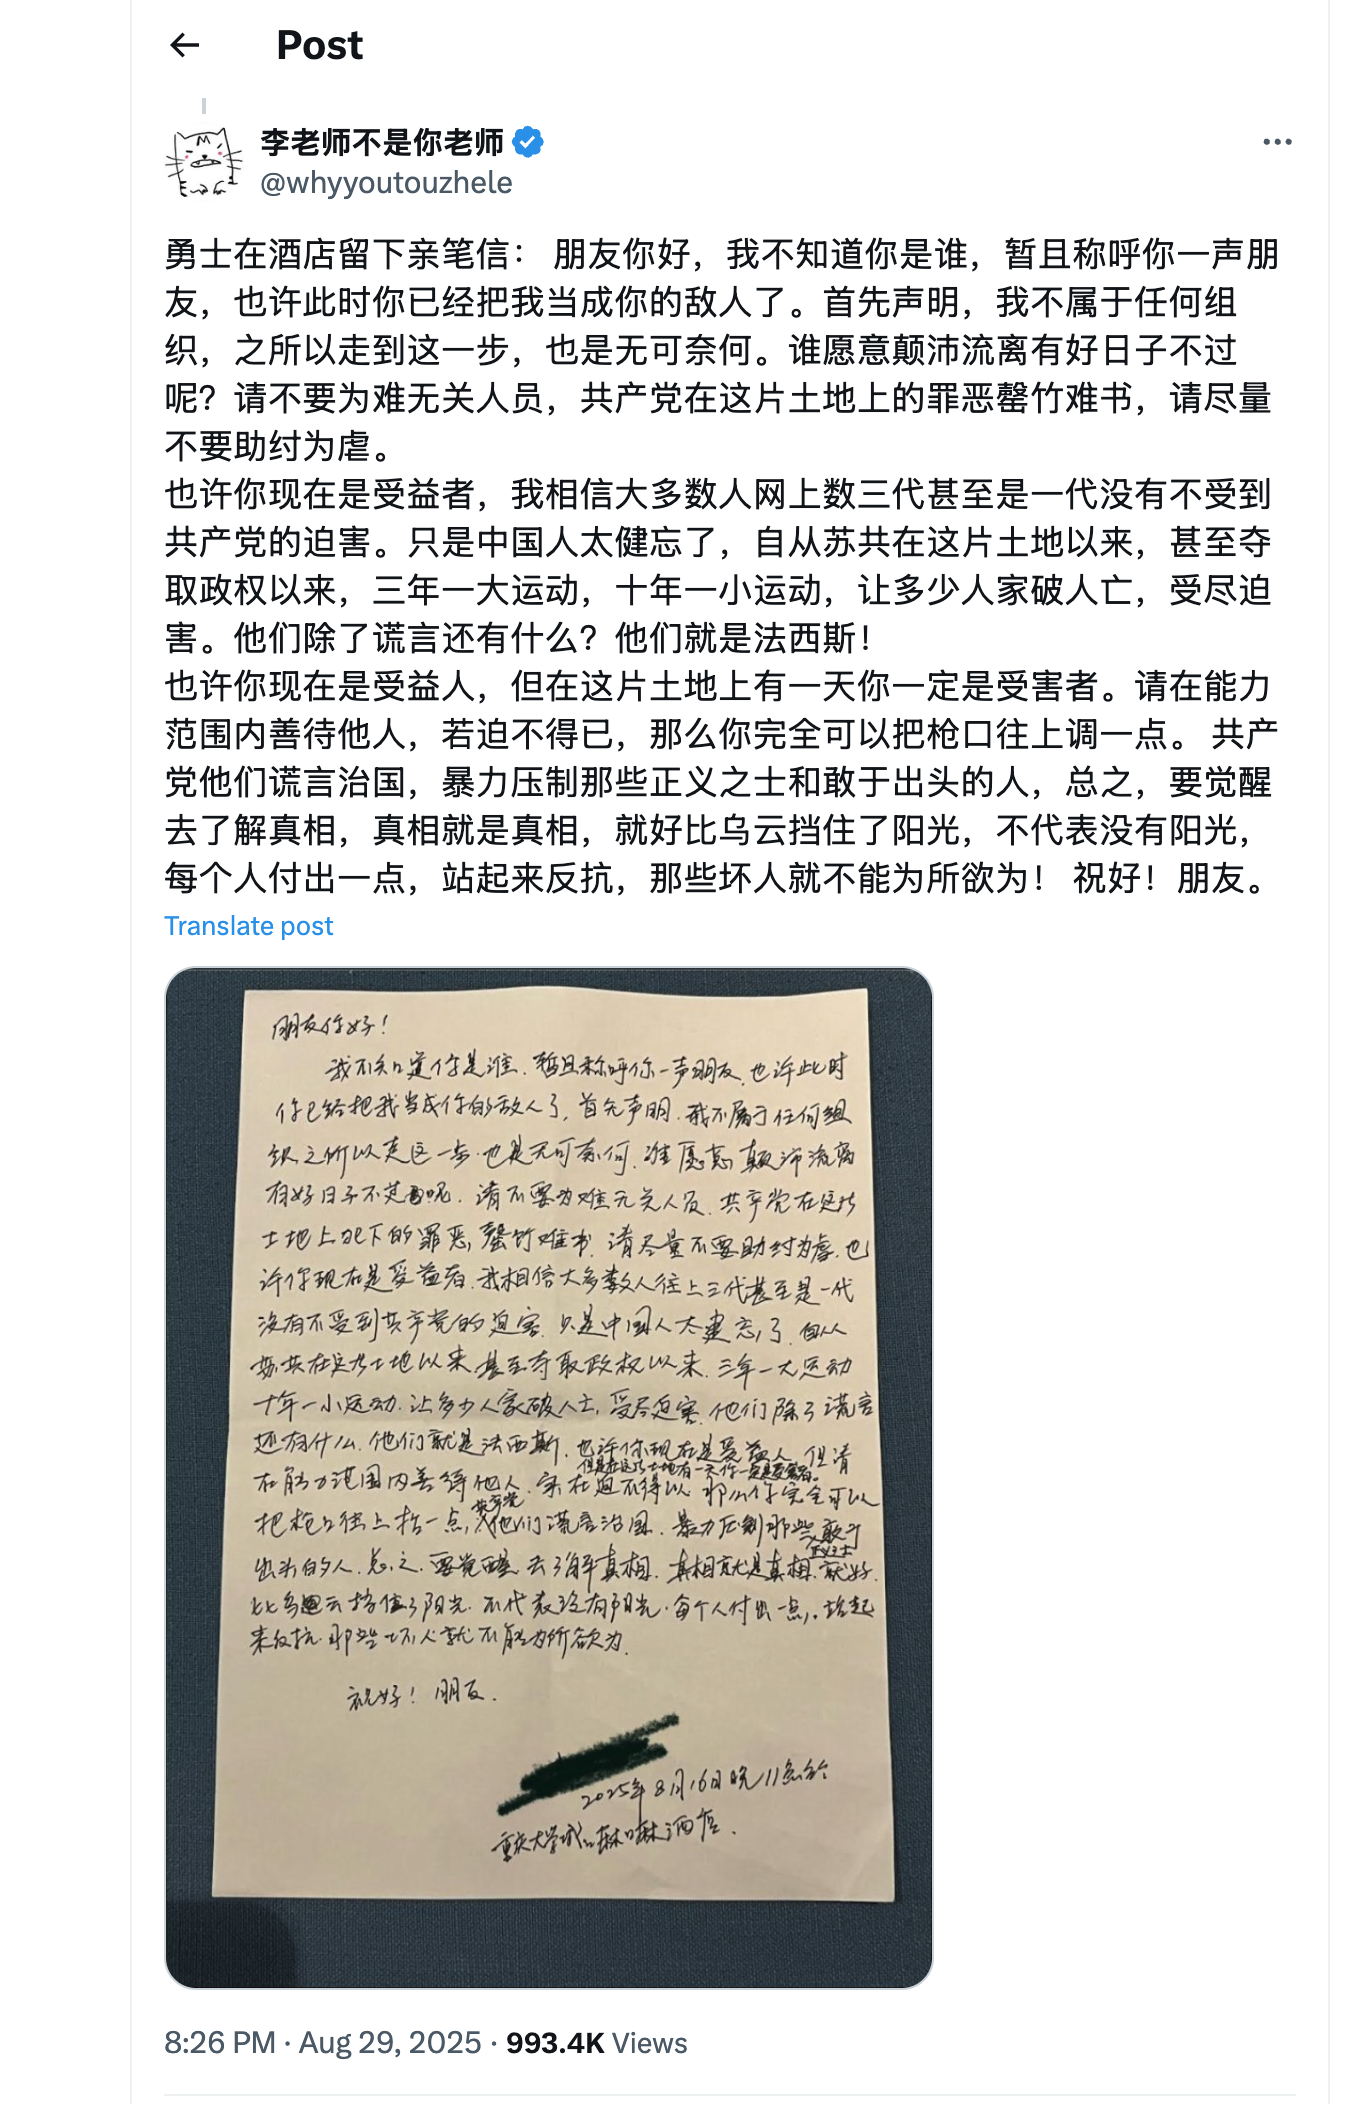 Post
李老师不是你老师
@whyyoutouzhele
勇士在酒店留下亲笔信： 朋友你好，我不知道你是谁，暂且称呼你一声朋
友，也许此时你已经把我当成你的敌人了。首先声明，我不属于任何组
织，之所以走到这一步，也是无可奈何。谁愿意颠沛流离有好日子不过
呢？请不要为难无关人员，共产党在这片土地上的罪恶罄竹难书，请尽量
不要助纣为虐。
也许你现在是受益者，我相信大多数人网上数三代甚至是一代没有不受到
共产党的迫害。只是中国人太健忘了，自从苏共在这片土地以来，甚至夺
取政权以来，三年一大运动，十年一小运动，让多少人家破人亡，受尽迫
害。他们除了谎言还有什么？他们就是法西斯！
也许你现在是受益人，但在这片土地上有一天你一定是受害者。请在能力
范围内善待他人，若迫不得已，那么你完全可以把枪口往上调一点。 共产
党他们谎言治国，暴力压制那些正义之士和敢于出头的人，总之，要觉醒
去了解真相，真相就是真相，就好比乌云挡住了阳光，不代表没有阳光，
每个人付出一点，站起来反抗，那些坏人就不能为所欲为！ 祝好！朋友。
Translate post
朋友你好！
我不知道你是谁.暂且称呼你一声朋友.也许此时
你已经把我当成你的敌人了,首先声明.我不属于任何组
织之所以走这一步.也是无可奈何.谁愿意颠沛流离
有好日子不过呢.请不要为难无关人员.共产党在这片
土地上犯下的罪恶,罄竹难书.请尽量不要助纣为虐.也
许你现在是受益者.我相信大多数人往上三代甚至是一代
没有不受到共产党的迫害.只是中国人太健忘了.自从
苏共在这片土地以来.甚至夺取政权以来.三年一大运动
十年一小运动.让多少人家破人亡,受尽迫害.他们除了谎言
还有什么.他们就是法西斯.也许你现在是受益人.但请
但是在这片土地有一天你一定是受害者。
在能力范围内善待他人.实在迫不得以.那么你完全可以
共产党
把枪口往上抬一点,他们谎言治国.暴力压制那些敢于
正义之士
出头的人.总之.要觉醒.去了解真相.真相就是真相.就好
比乌云挡住了阳光.不代表没有阳光.每个人付出一点,.站起
来反抗.那些坏人就不能为所欲为.
祝好！朋友.
2025年8月16日晚11点于
重庆大学城 酒店.
8:26 PM · Aug 29, 2025 · 993.4K Views